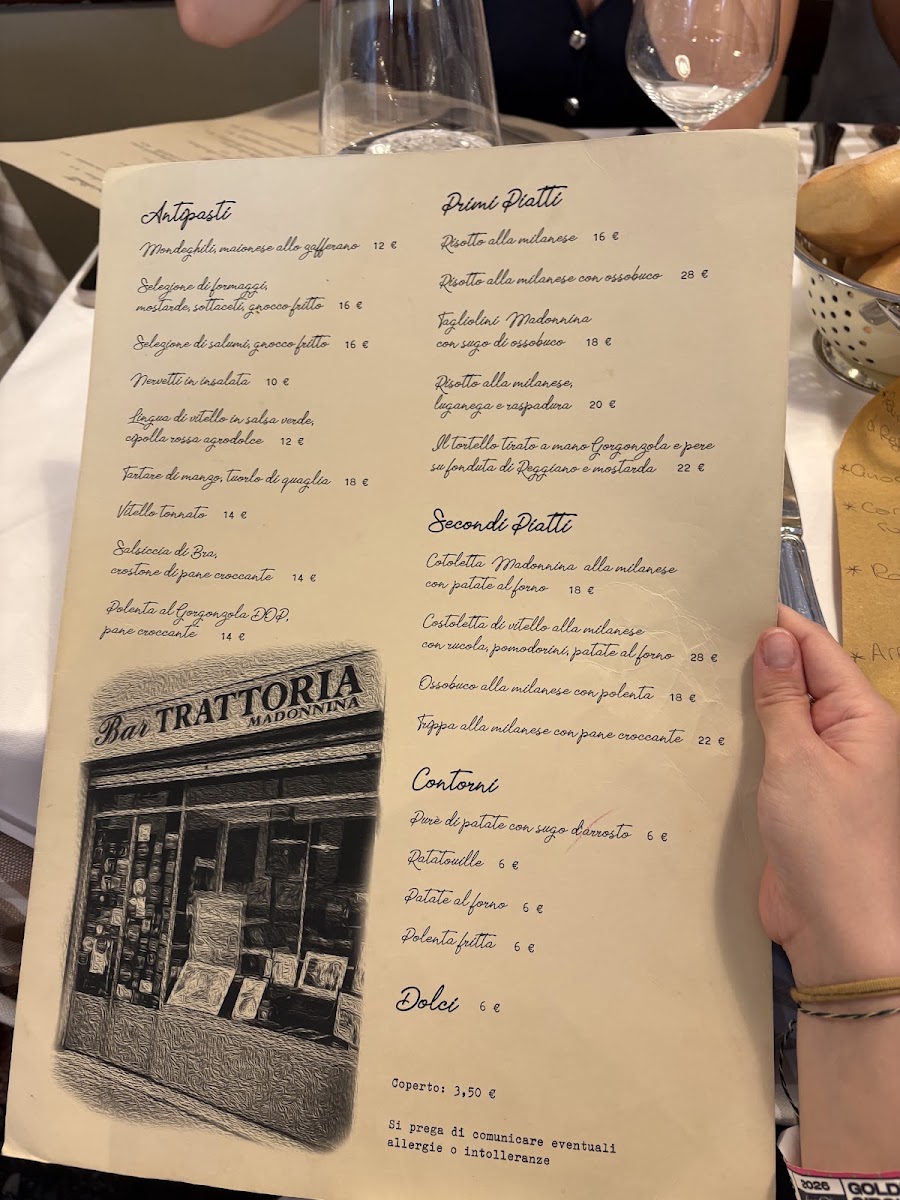 Antipasti
Mondeghili, maionese allo zafferano 12 €
Selezione di formaggi,
mostarde, sottaceti, gnocco fritto 16 €
Selezione di salumi, gnocco fritto 16 €
Nervetti in insalata 10 €
Lingua di vitello in salsa verde,
cipolla rossa agrodolce 12 €
Tartare di manzo, tuorlo di quaglia 18 €
Vitello tonnato 14 €
Salsiccia di Bra,
crostone di pane croccante 14 €
Polenta al Gorgonzola DOP,
pane croccante 14 €
Bar TRATTORIA
MADONNINA
Primi Piatti
Risotto alla milanese 16 €
Risotto alla milanese con ossobuco 28 €
Tagliolini Madonnina
con sugo di ossobuco 18 €
Risotto alla milanese,
luganega e raspadura 20 €
Il tortello tirato a mano Gorgonzola e pere
su fonduta di Reggiano e mostarda 22 €
Secondi Piatti
Cotoletta Madonnina alla milanese
con patate al forno 18 €
Costoletta di vitello alla milanese
con rucola, pomodorini, patate al forno 28 €
Ossobuco alla milanese con polenta 18 €
Trippa alla milanese con pane croccante 22 €
Contorni
Purè di patate con sugo d'arrosto 6 €
Ratatouille 6 €
Patate al forno 6 €
Polenta fritta 6 €
Dolci 6 €
Coperto: 3,50 €
Si prega di comunicare eventuali
allergie o intolleranze
2026